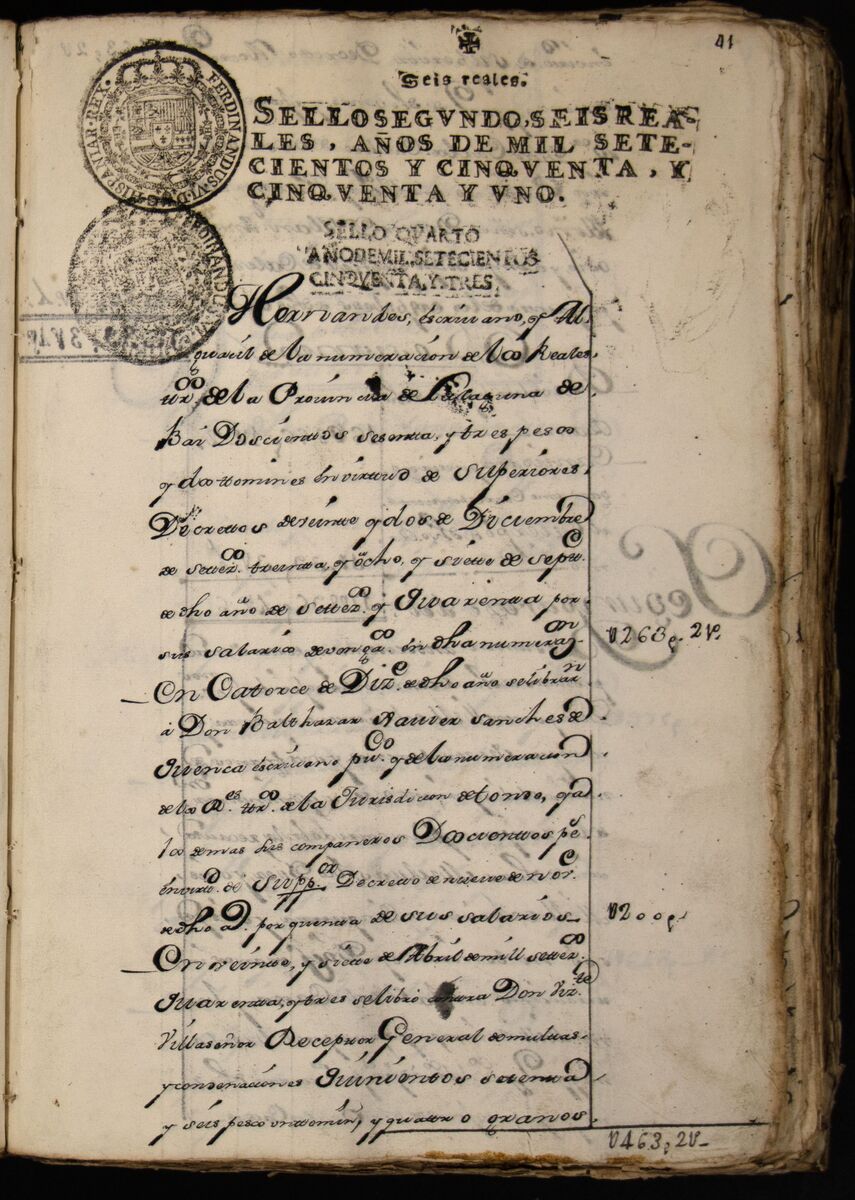 41
Seis reales.
SELLO SEGVNDO, SEIS REA-
LES, AÑOS DE MIL SETE-
CIENTOS Y CINQVENTA, Y
CINQVENTA Y VNO.
FERDINANDUS VI D G HISPANIAR REX
SELLO QUARTO
AÑO DE MIL SETECIENTOS
CINQVENTA, Y TRES,
Hernandes, escriuano, y Al-
guaçil de la numeracion de los Reales
de la Prouincia de la laguna de
Bai Doscientos sesenta, y tres pesos
y dos tomines en virtud de superiores
Decretos de veinte y dos de Diciembre
de settez.os treinta, y ocho, y siete de Septt.e
de dho año de settez.os y quarenta por
sus salarios devong.dos en dha numeraz.on
En Catorce de Diz.e de dho año se librar.n
á Don Balthazar Xauier Sanches de
Quenca escriuano pu.co y de la numeracion
de los R.es tr.os de la Jurisdicion de tondo, y a
los demas sus compañeros Doscientos p.s
en virtu.d de Supp.or Decreto de nueue de nov.e
de dho a.o por quenta de sus salarios
En veinte, y siete de Abril de mill settez.os
quarenta, y tres se libró contra Don Viz.te
Villaseñor Receptor General de multas,
y condenaciones quinientos setenta
y seis pesos un tomin, y quatro granos
U263p. 2r.
U200p.
U463p. 2r.